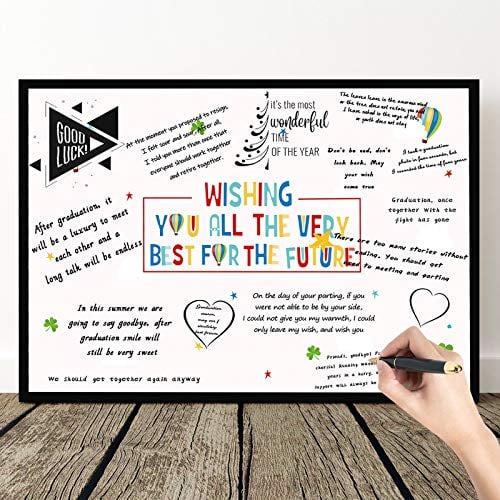 GOOD
LUCK!
At the moment you proposed to resign,
I felt sour and sour, After all,
I told you more than once that
everyone should work together
and retire together.
it's the most
wonderful
TIME
OF THE YEAR
The leaves leave in the
the tree does not retain, you and
I leave
or youth does not stay
Don't be sad, don't
look back. May
your wish
come true
I took a graduation
photo in four seconds, but
I recorded the time of four years
Graduation, once
together With the
fight has gone
After graduation, it
will be a luxury to meet
each other and a
long talk will be endless
WISHING
YOU ALL THE VERY
BEST FOR THE FUTURE
There are too many stories without
ending. You should get
used to meeting and parting
In this summer we are
going to say goodbye, after
graduation smile will
still be very sweet
Graduation
season,
may our
friendship
last forever
On the day of your parting, if you
were not able to be by your side,
I could not give you my warmth, I could
only leave my wish, and wish you
Friends, goodbye!
cheerful Running
years in a hurry,
support will always be
We should get together again anyway